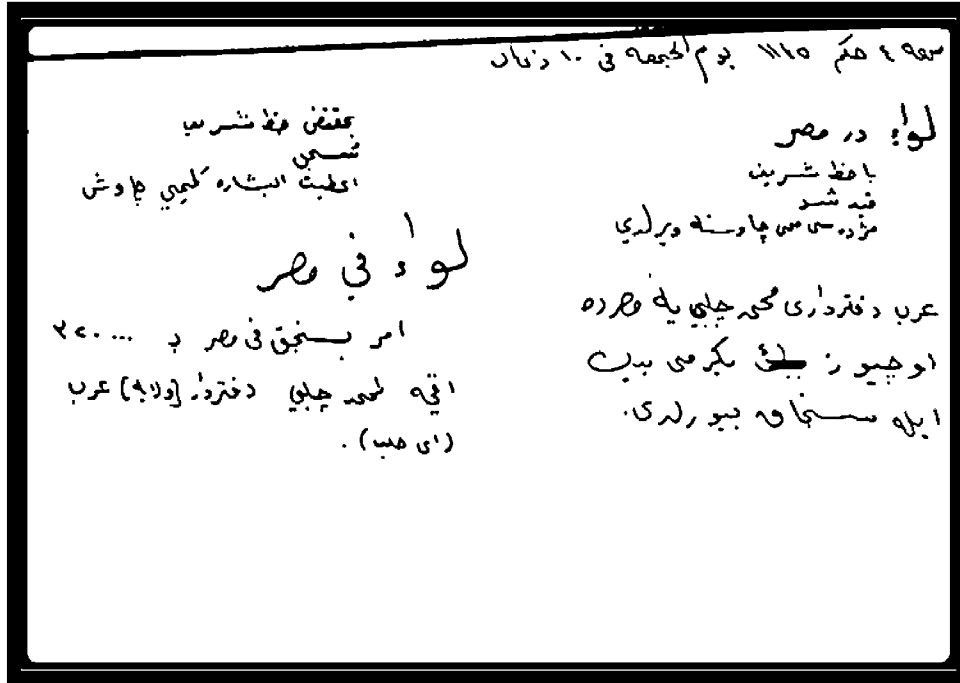 ٤ حكم ١١٤٥ يوم الجمعة في ١٠
لواء در مصر
با خط شريف
قيد شد
مژده سى چاوشنه ويرلدي
عرب دفتردارى محمد چلبي يه مصرده
اوچيوز بيك يكرمى بيك
ايله سنجاق بيورلدى.
بمقتضى خط شريف
تسجل
اعطيت البشاره چاوش
لواء في مصر
امر بسنجق في مصر بـ ٣٢٠٠٠٠
اقچه لمحمد چلبي دفتردار [ولاية] عرب
(اى حلب).